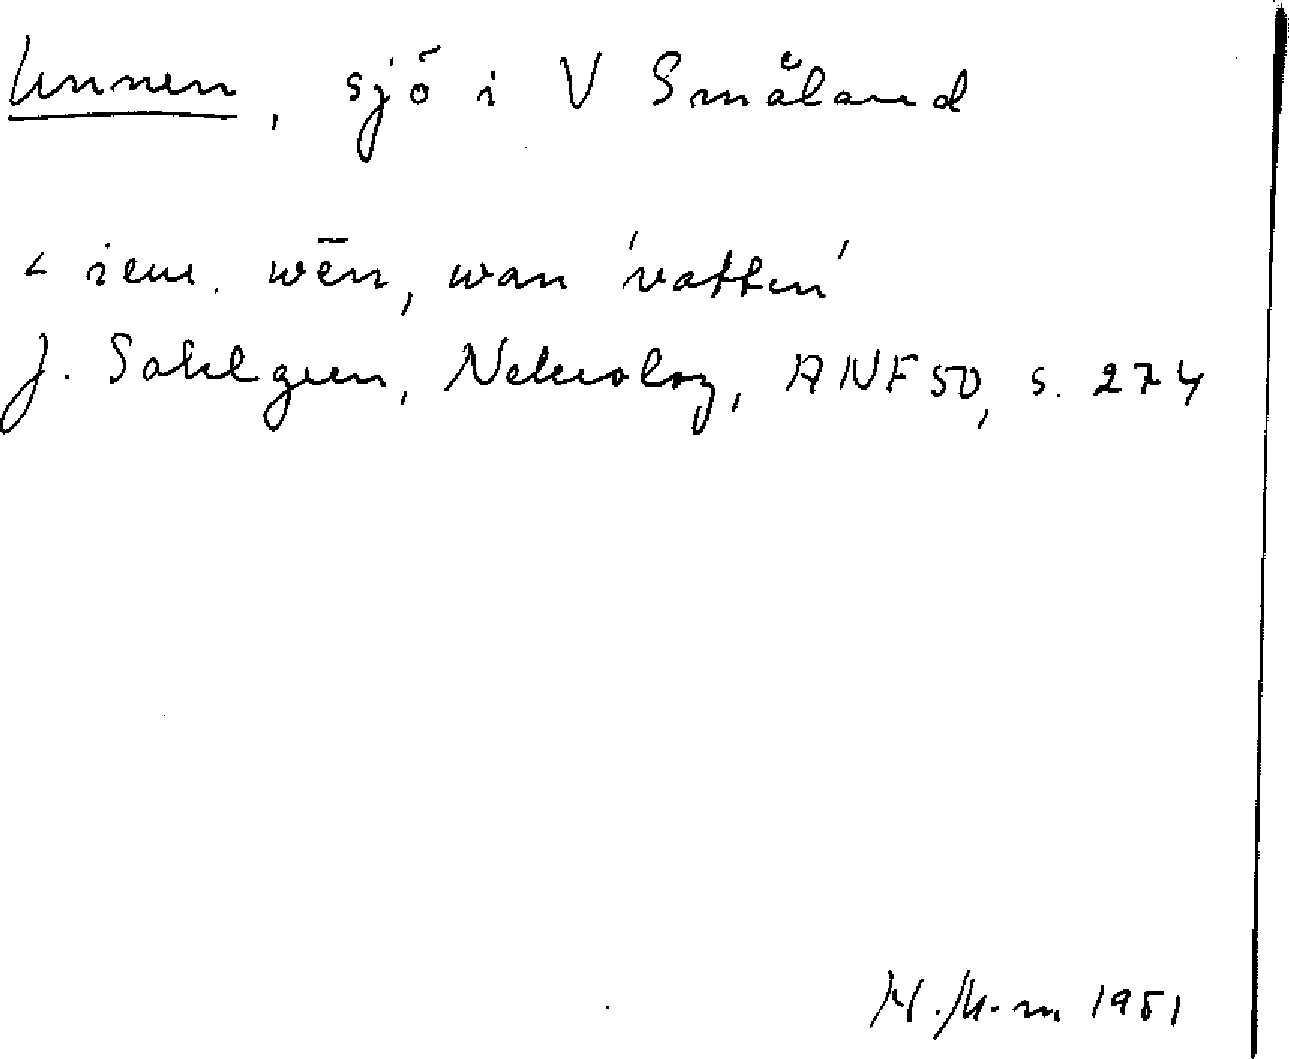 Unnen, sjö i V Småland
< ieur. wēn, wan 'vatten'
J. Sahlgren, Nekrolog, ANF 50, s. 274
1951